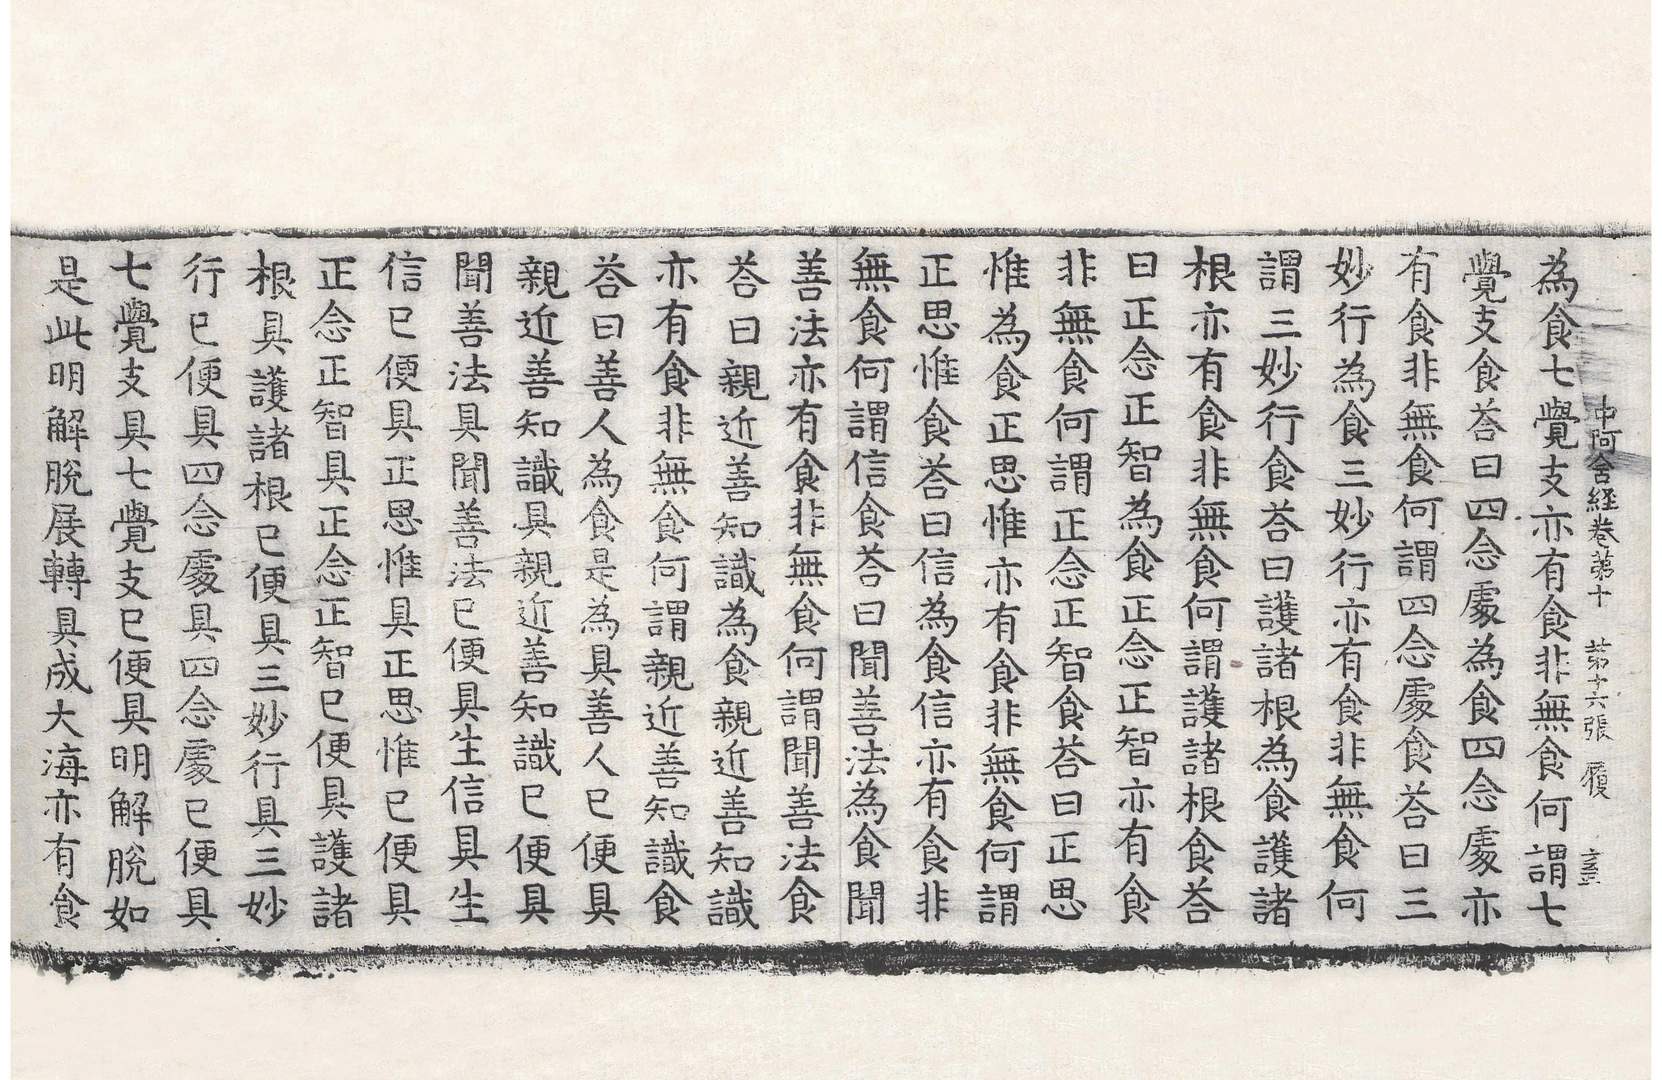 中阿含経卷第十　第十六張　履　
為食七覺支亦有食非無食何謂七
覺支食荅曰四念處為食四念處亦
有食非無食何謂四念處食荅曰三
妙行為食三妙行亦有食非無食何
謂三妙行食荅曰護諸根為食護諸
根亦有食非無食何謂護諸根食荅
曰正念正智為食正念正智亦有食
非無食何謂正念正智食荅曰正思
惟為食正思惟亦有食非無食何謂
正思惟食荅曰信為食信亦有食非
無食何謂信食荅曰聞善法為食聞
善法亦有食非無食何謂聞善法食
荅曰親近善知識為食親近善知識
亦有食非無食何謂親近善知識食
荅曰善人為食是為具善人已便具
親近善知識具親近善知識已便具
聞善法具聞善法已便具生信具生
信已便具正思惟具正思惟已便具
正念正智具正念正智已便具護諸
根具護諸根已便具三妙行具三妙
行已便具四念處具四念處已便具
七覺支具七覺支已便具明解脫如
是此明解脫展轉具成大海亦有食